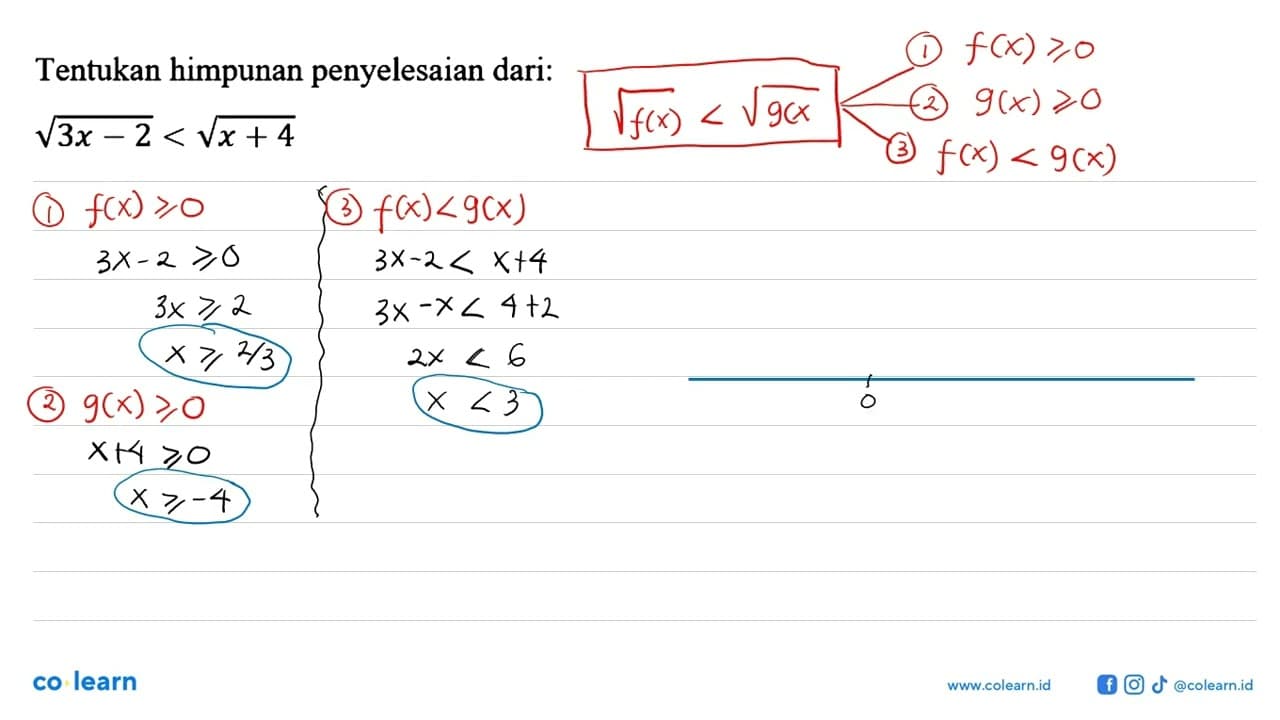 Tentukan himpunan penyelesaian dari:
√3x − 2 < √x + 4
√f(x) < √g(x
① f(x) ⩾ 0
② g(x) ⩾ 0
③ f(x) < g(x)
① f(x) ⩾ 0
3x - 2 ⩾ 0
3x ⩾ 2
x ⩾ 2/3
② g(x) ⩾ 0
x + 4 ⩾ 0
x ⩾ -4
③ f(x) < g(x)
3x - 2 < x + 4
3x - x < 4 + 2
2x < 6
x < 3
0
co learn
www.colearn.id
@colearn.id